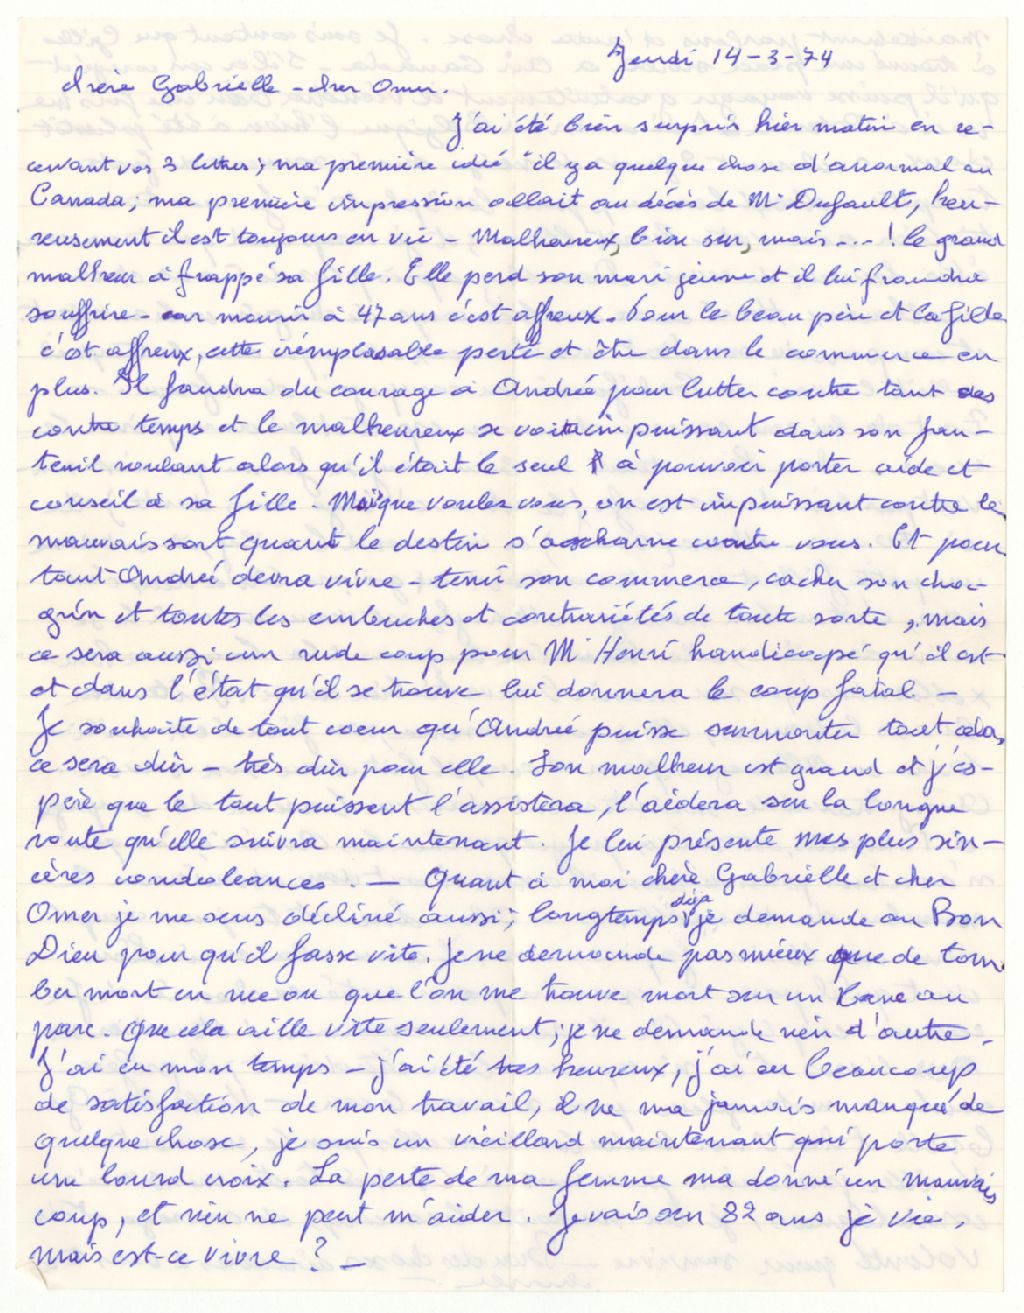 Jeudi 14-3-74
Chère Gabrielle - cher Omer.
J'ai été bien surpris hier matin en re-
cevant vos 3 lettres; ma première idée "il y a quelque chose d'anormal au
Canada; ma première impression allait au décès de Mr Dufault, heu-
reusement il est toujours en vie - Malheureux, bien sur, mais ---! le grand
malheur à frappé sa fille. Elle perd son mari jeune et il lui faudra
souffrire - car mourir à 47 ans c'est affreux. Pour le beau père et la fille
c'est affreux, cette irémplasable perte et être dans le commerce en
plus. Il faudra du courage a Andrée pour lutter contre tant des
contre temps et le malheureux se voit impuissant dans son fau-
teuil roulant alors qu'il était le seul à pouvoir porter aide et
conseil à sa fille. Mais que voulez vous, on est impuissant contre le
mauvais sort quant le destin s'ascharne contre vous. Et pour
tant Andrée devra vivre - tenir son commerce, cacher son cha-
grin et toutes les embuches et contrariétés de toute sorte, mais
ce sera aussi un rude coup pour Mr Henri handicapé qu'il est
et dans l'état qu'il se trouve lui donnera le coup fatal -
Je souhaite de tout coeur qu'Andrée puisse surmonter tout cela,
ce sera dur - très dur pour elle. Son malheur est grand et j'es-
père que le tout puissent l'assistera, l'aidera sur la longue
route qu'elle suivra maintenant. Je lui présente mes plus sin-
cères condoléances. - Quant à moi chère Gabrielle et cher
Omer je me sens décliné aussi; longtemps déja je demande au Bon
Dieu pour qu'il fasse vite. Je ne demande pas mieux que de tom-
ber mort en rue ou que l'on me trouve mort sur un banc au
parc. Que cela aille vite seulement; je ne demande rien d'autre.
J'ai eu mon temps - j'ai été très heureux, j'ai eu beaucoup
de satisfaction de mon travail, il ne ma jamais manqué de
quelque chose, je suis un vieillard maintenant qui porte
une lourd croix. La perte de ma femme ma donné un mauvais
coup, et rien ne peut m'aider. Je vais sur 82 ans je vie,
mais est-ce vivre ? -